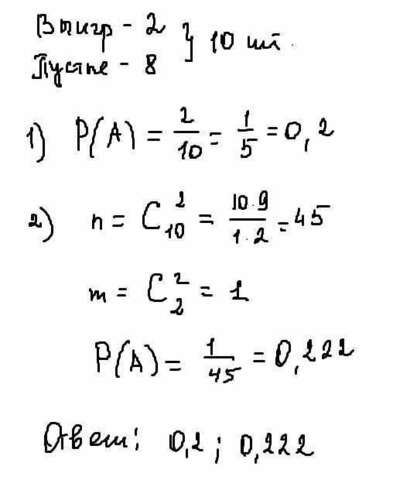 Выигр - 2
Пустые - 8 } 10 шт.
1) P(A) = 2/10 = 1/5 = 0,2
2) n = C₁₀² = 10·9/1·2 = 45
m = C₂² = 1
P(A) = 1/45 = 0,222
Ответ: 0,2 ; 0,222